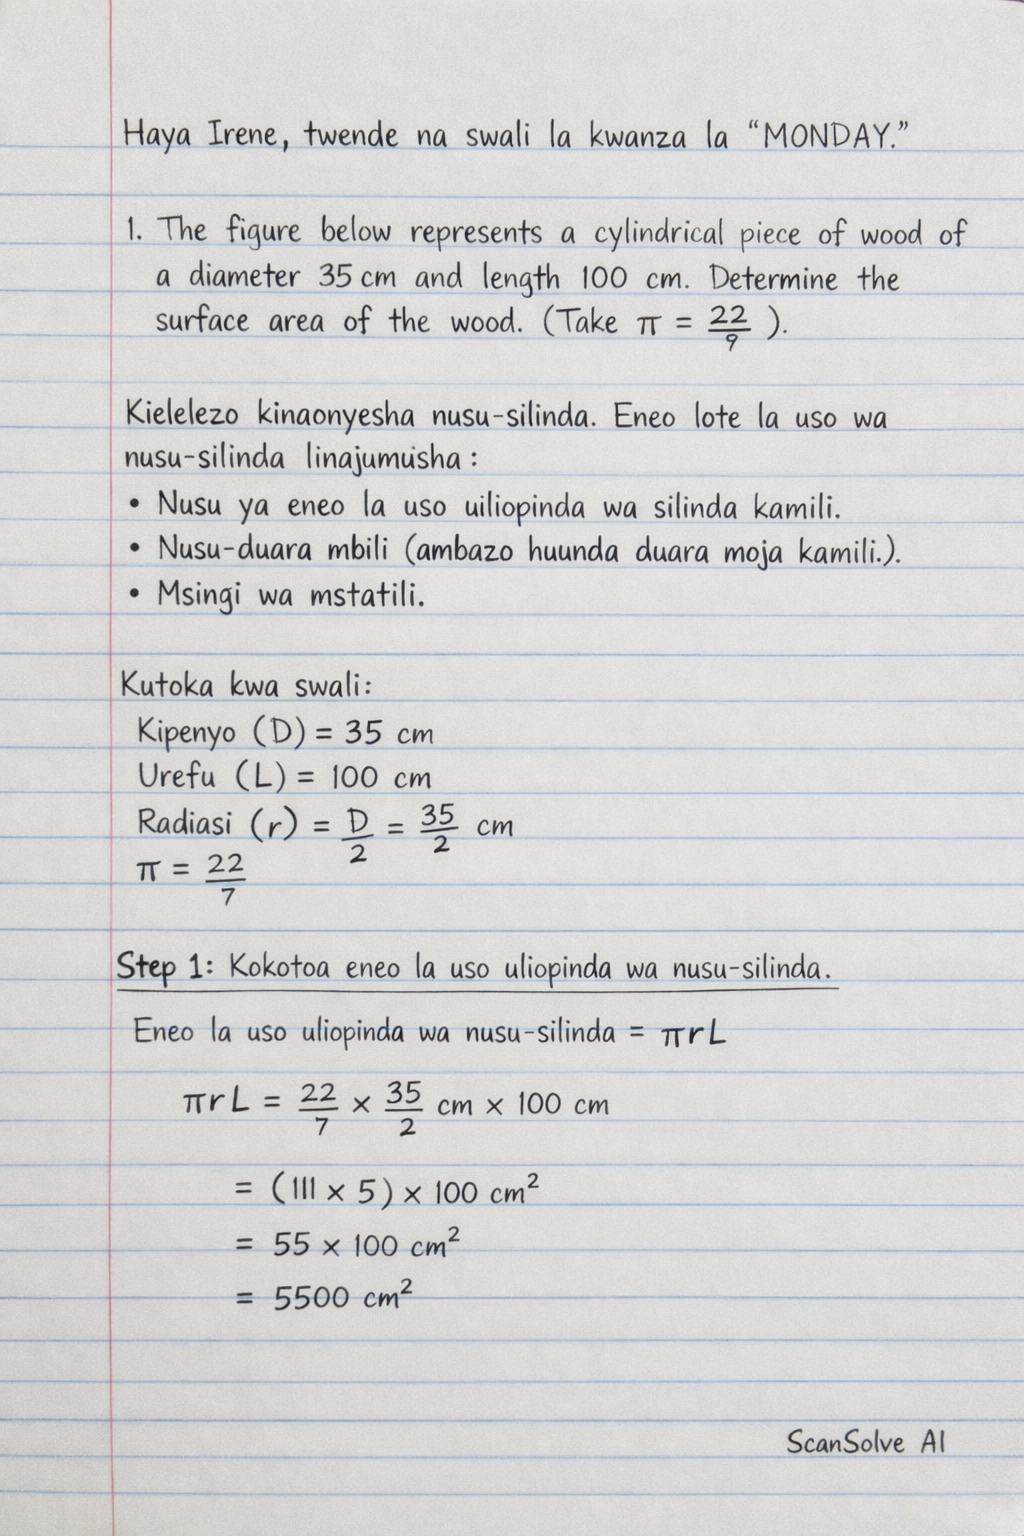 Haya Irene, twende na swali la kwanza la “MONDAY.”
1. The figure below represents a cylindrical piece of wood of
a diameter 35 cm and length 100 cm. Determine the
surface area of the wood. (Take π = 22/9 ).
Kielelezo kinaonyesha nusu-silinda. Eneo lote la uso wa
nusu-silinda linajumuisha :
• Nusu ya eneo la uso uiliopinda wa silinda kamili.
• Nusu-duara mbili (ambazo huunda duara moja kamili.).
• Msingi wa mstatili.
Kutoka kwa swali:
Kipenyo (D) = 35 cm
Urefu (L) = 100 cm
Radiasi (r) = D/2 = 35/2 cm
π = 22/7
Step 1: Kokotoa eneo la uso uliopinda wa nusu-silinda.
Eneo la uso uliopinda wa nusu-silinda = πrL
πrL = 22/7 × 35/2 cm × 100 cm
= (111 × 5) × 100 cm²
= 55 × 100 cm²
= 5500 cm²
ScanSolve AI